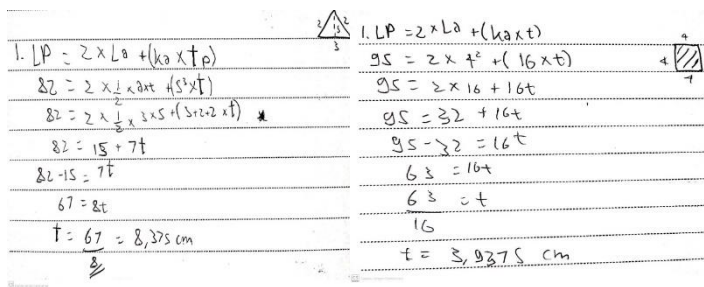 2 15 2
3
1. LP = 2 x La + (ka x tp)
82 = 2 x 1/2 x a x t + (s³ x t)
82 = 2 x 1/2 x 3 x 5 + (3+2+2 x t)
82 = 15 + 7t
82 - 15 = 7t
67 = 8t
t = 67/8 = 8,375 cm
1. LP = 2 x La + (ka x t)
4
4
4
95 = 2 x 4² + (16 x t)
95 = 2 x 16 + 16t
95 = 32 + 16t
95 - 32 = 16t
63 = 16t
63/16 = t
t = 3,9375 cm